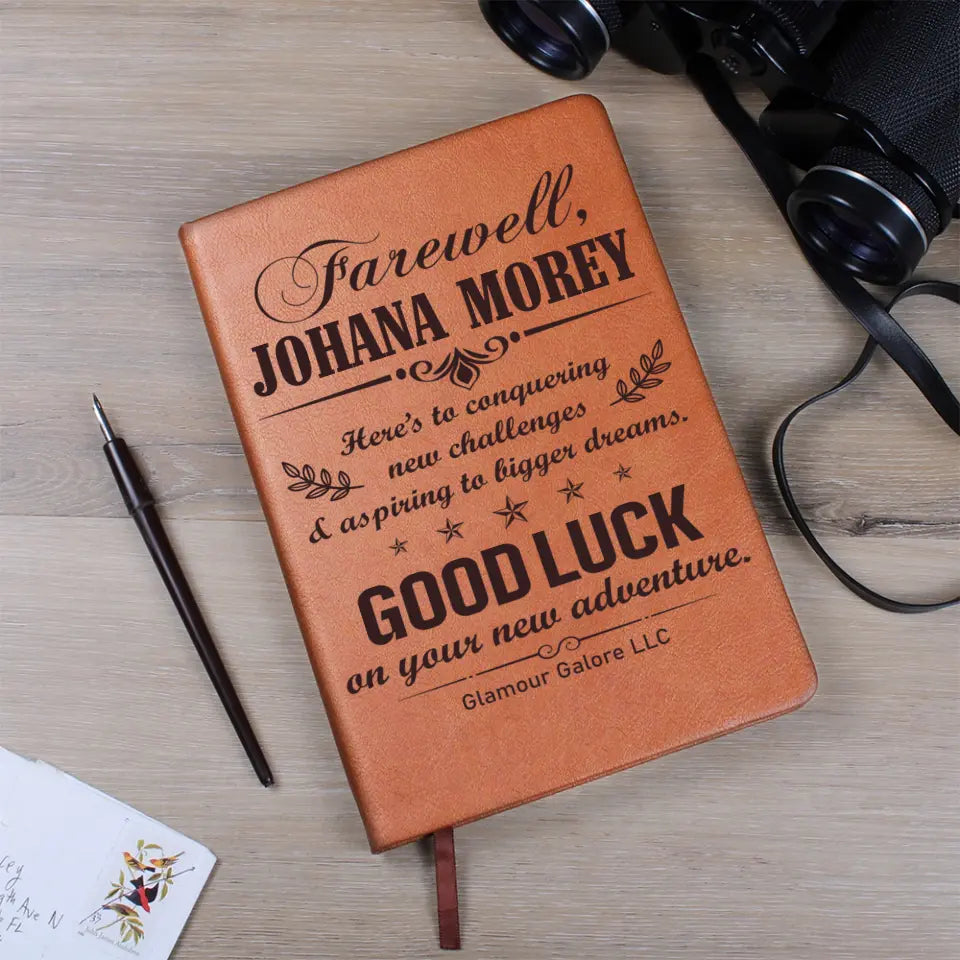 Farewell,
JOHANA MOREY
Here's to conquering
new challenges
& aspiring to bigger dreams.
GOOD LUCK
on your new adventure.
Glamour Galore LLC
Ave N
FL
37